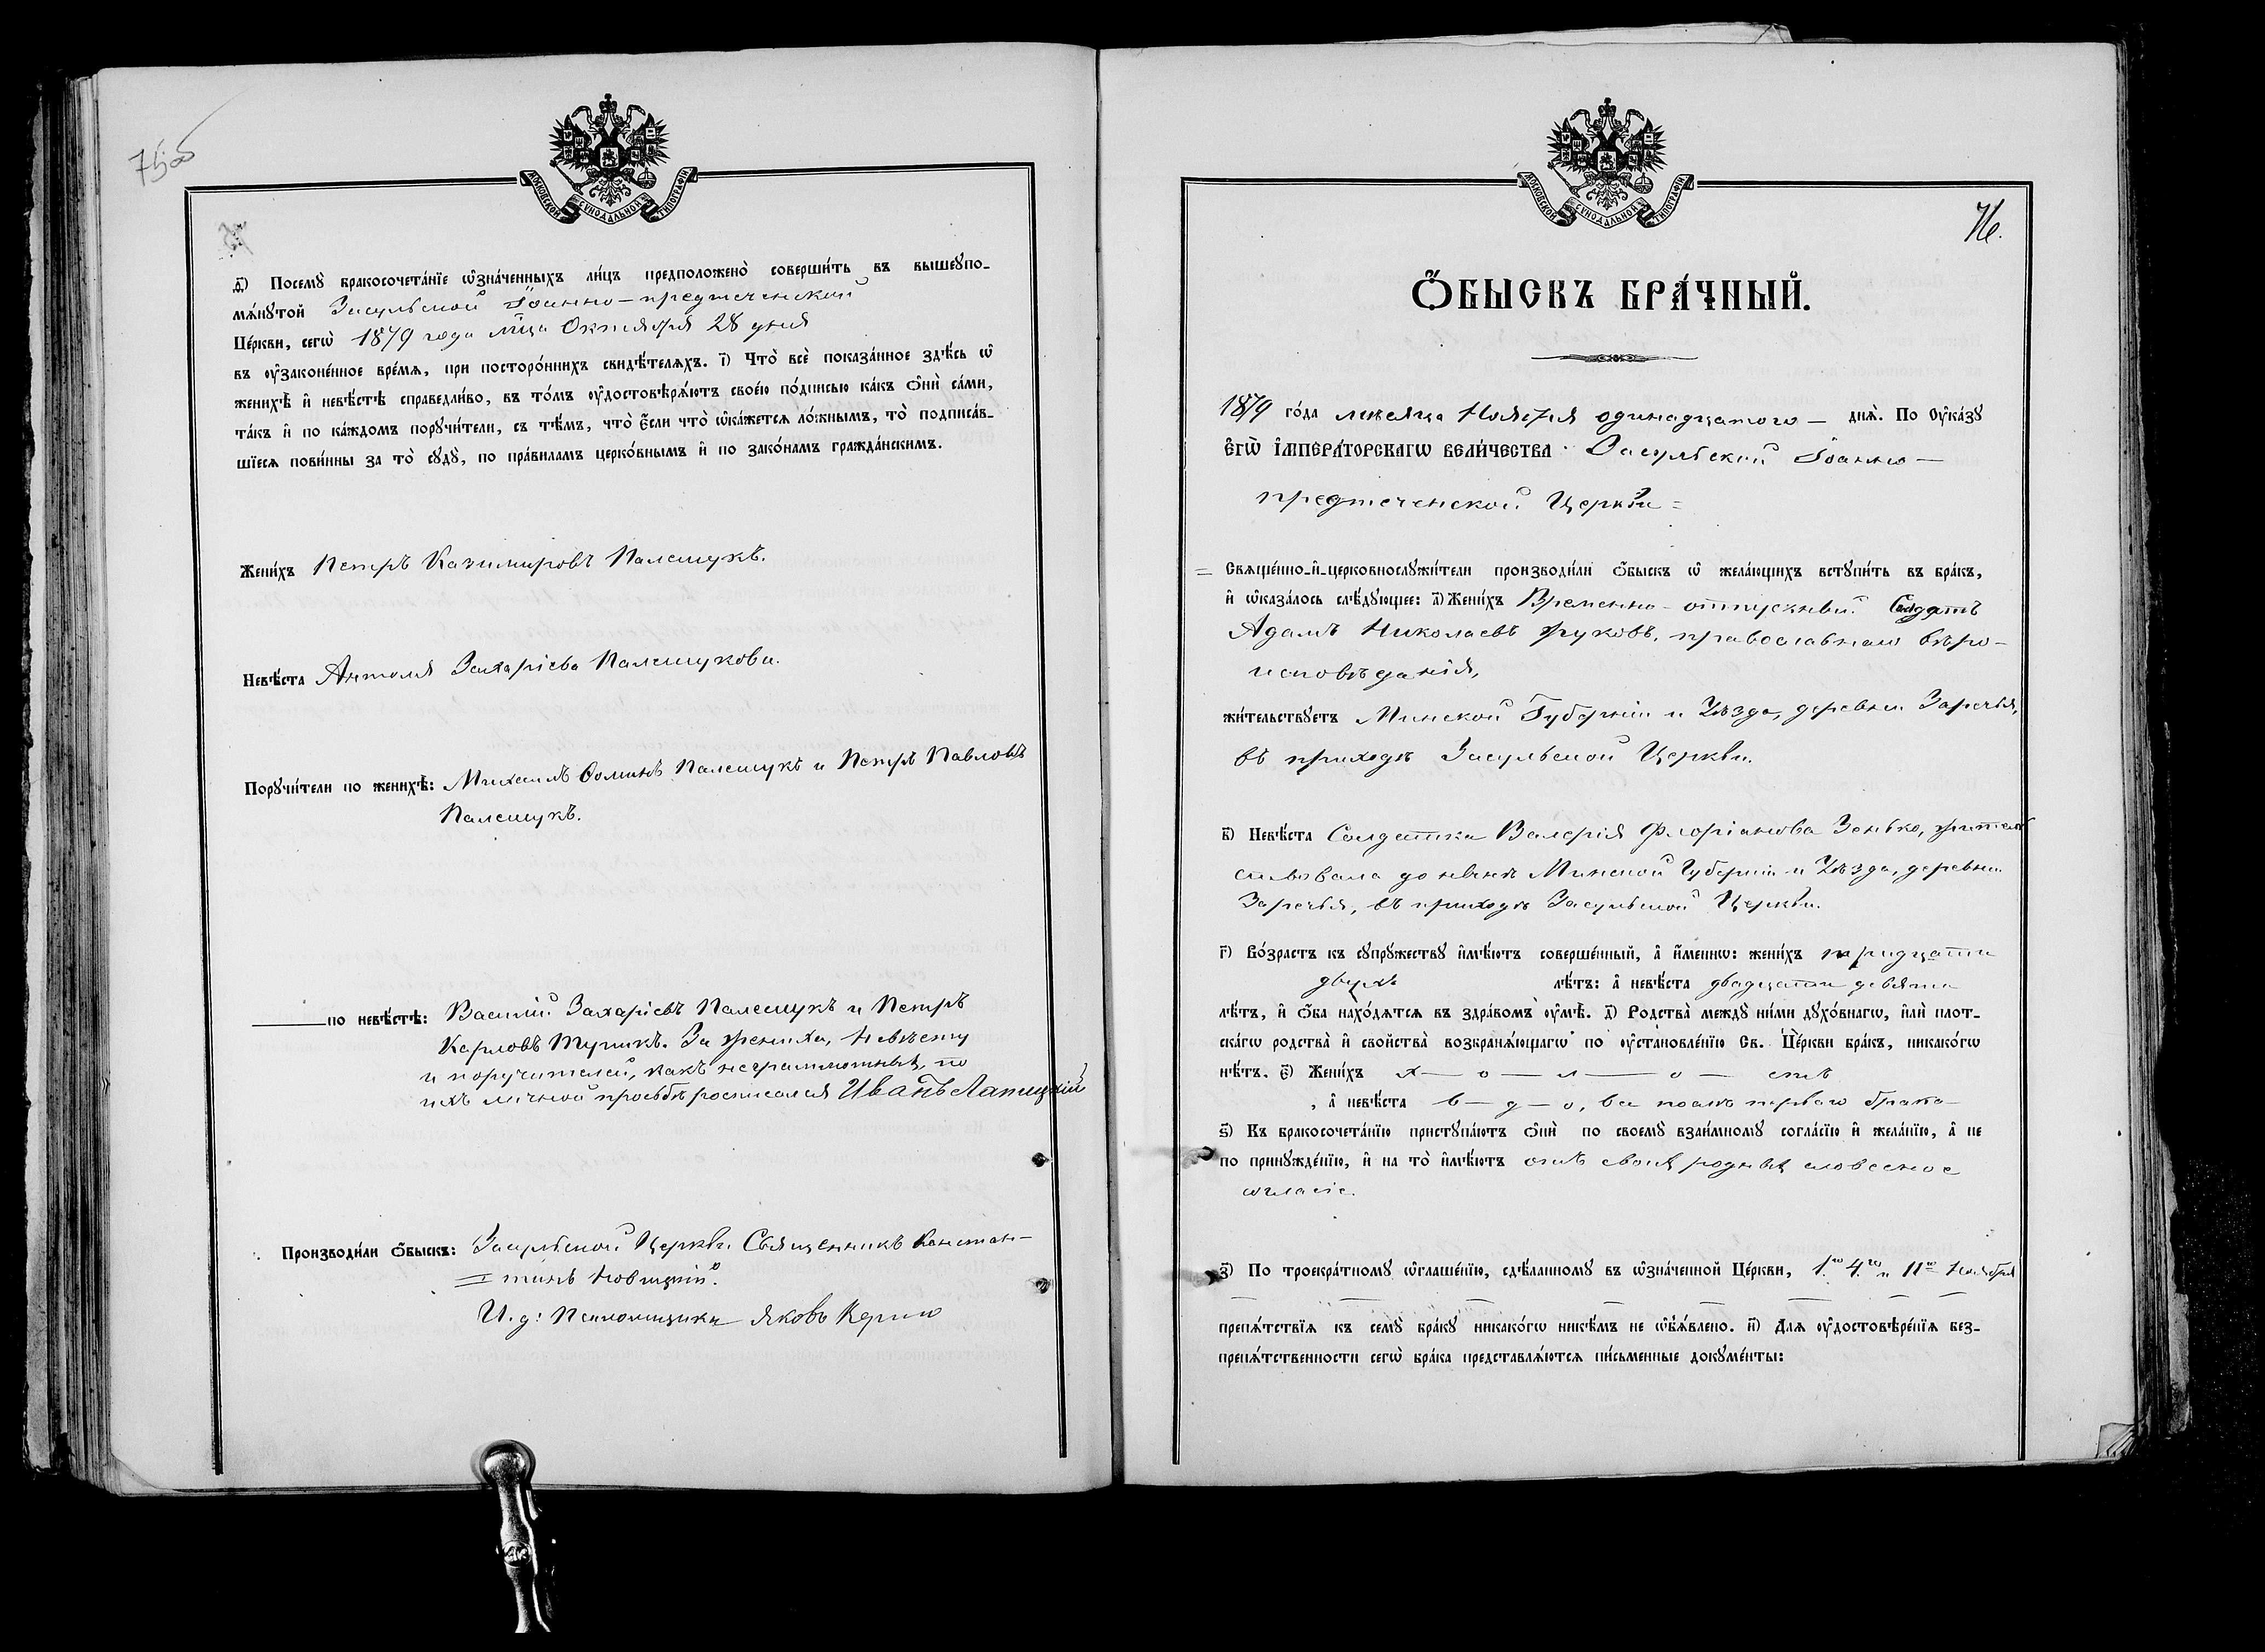 75об
МОСКОВСКОЙ СѴНОДАЛЬНОЙ ТИПОГРАФІИ
д҃і) Посемꙋ̀ бракосочета́нїе ѡ҆зна́ченныхъ ли́цъ предположено̀ соверши́ть въ вышеꙋпо-
мѧ́нꙋтой Засульской Іоанно-предтеченской
Це́ркви, сегѡ̀ 1879 года м͠ца Октября 28 дня
въ ᲂу҆законе́нное вре́мѧ, при посторо́ннихъ свидѣ́телѧхъ. і҃) Что̀ всѐ показа́нное здѣ́сь ѡ҆
женихѣ̀ и҆ невѣ́стѣ справедли́во, въ то́мъ ᲂу҆достовѣрѧ́ютъ свое́ю по́дписью ка́къ ѻ҆нѝ са́ми,
та́къ и҆ по ка́ждомъ порꙋчи́тели, съ тѣ́мъ, что̀ є҆́сли что̀ ѡ҆ка́жетсѧ ло́жнымъ, то̀ подписа́в-
шїесѧ пови́нны за то̀ сꙋдꙋ̀, по пра́виламъ церко́внымъ и҆ по зако́намъ гражда́нскимъ.
Жени́хъ Петръ Казимировъ Палещукъ.
Невѣ́ста Антоля Захаріева Палещукова.
Порꙋчи́тели по женихѣ̀: Михаилъ Ѳоминъ Палещукъ и Петръ Павловъ
Палещукъ.
по невѣ́стѣ: Василій Захаріевъ Палещукъ и Петръ
Карловъ Тупикъ. За жениха, невѣсту
и поручителей, какъ неграмотныхъ, по
ихъ личной просьбѣ росписался Иванъ Лапицкій
Производи́ли ѻ҆́быскъ: Засульской Церкви Священникъ Констан-
тинъ Новицкій.
И. д: Псаломщика Яковъ
МОСКОВСКОЙ СѴНОДАЛЬНОЙ ТИПОГРАФІИ
76.
Ѻ҆́БЫСКЪ БРА́ЧНЫЙ.
1879 го́да мѣсяца Ноября одинадцатого — днѧ̀. По Оу҆ка́зꙋ
Є҆ГѠ̀ И҆МПЕРА́ТОРСКАГѠ ВЕЛИ́ЧЕСТВА Засульской Іоанно—
предтеченской Церкви =
= Свѧще́нно-и҆-церковнослꙋжи́тели производи́ли ѻ҆́быскъ ѡ҆ жела́ющихъ встꙋпи́ть въ бра́къ,
и҆ ѡ҆каза́лось слѣ́дꙋющее: а҃) Жени́хъ Временно-отпускный Солдатъ
Адамъ Николаевъ Жуковъ, православнаго вѣро-
исповѣданія,
жи́тельствꙋетъ Минской Губерніи и Уѣзда, деревни Заречья,
въ приходѣ Засульской Церкви.
в҃) Невѣ́ста Солдатка Валерія Флоріанова Зенько, житель
ствовала до нынѣ Минской Губерніи и Уѣзда, деревни
Заречья, въ приходѣ Засульской Церкви.
г҃) Во́зрастъ къ сꙋпрꙋ́жествꙋ и҆мѣ́ютъ соверше́нный, а҆ и҆́меннѡ: жени́хъ тридцати
двухъ лѣ́тъ: а҆ невѣ́ста двадцати девяти
лѣ́тъ, и҆ ѻ҆́ба нахо́дѧтсѧ въ здра́вомъ ᲂу҆мѣ̀. д҃) Родства̀ междꙋ̀ ни́ми дꙋхо́внагѡ, и҆лѝ плот-
ска́гѡ родства̀ и҆ свойства̀ возбранѧ́ющагѡ по ᲂу҆становле́нїю Св. Це́ркви бра́къ, никако́гѡ
нѣ́тъ. є҃) Жени́хъ х— о — л — о — стъ
, а҆ невѣ́ста в — д — о, ва послѣ перваго брака —
ѕ҃) Къ бракосочета́нїю пристꙋпа́ютъ ѻ҆нѝ по своемꙋ̀ взаи́мномꙋ согла́сїю и҆ жела́нїю, а҆ не
по принꙋжде́нїю, и҆ на то̀ и҆мѣ́ютъ отъ своихъ родныхъ словесное
согласіе.
з҃) По троекра́тномꙋ ѡ҆глаше́нїю, сдѣ́ланномꙋ въ ѡ҆зна́ченной Це́ркви, 1.го 4.го и 11го Ноября
препѧ́тствїѧ къ семꙋ̀ бра́кꙋ никако́гѡ никѣ́мъ не ѡ҆б̾ѧ́влено. и҃) Длѧ ᲂу҆достовѣре́нїѧ без-
препѧ́тственности сегѡ̀ бра́ка представлѧ́ютсѧ пи́сьменные докꙋме́нты: